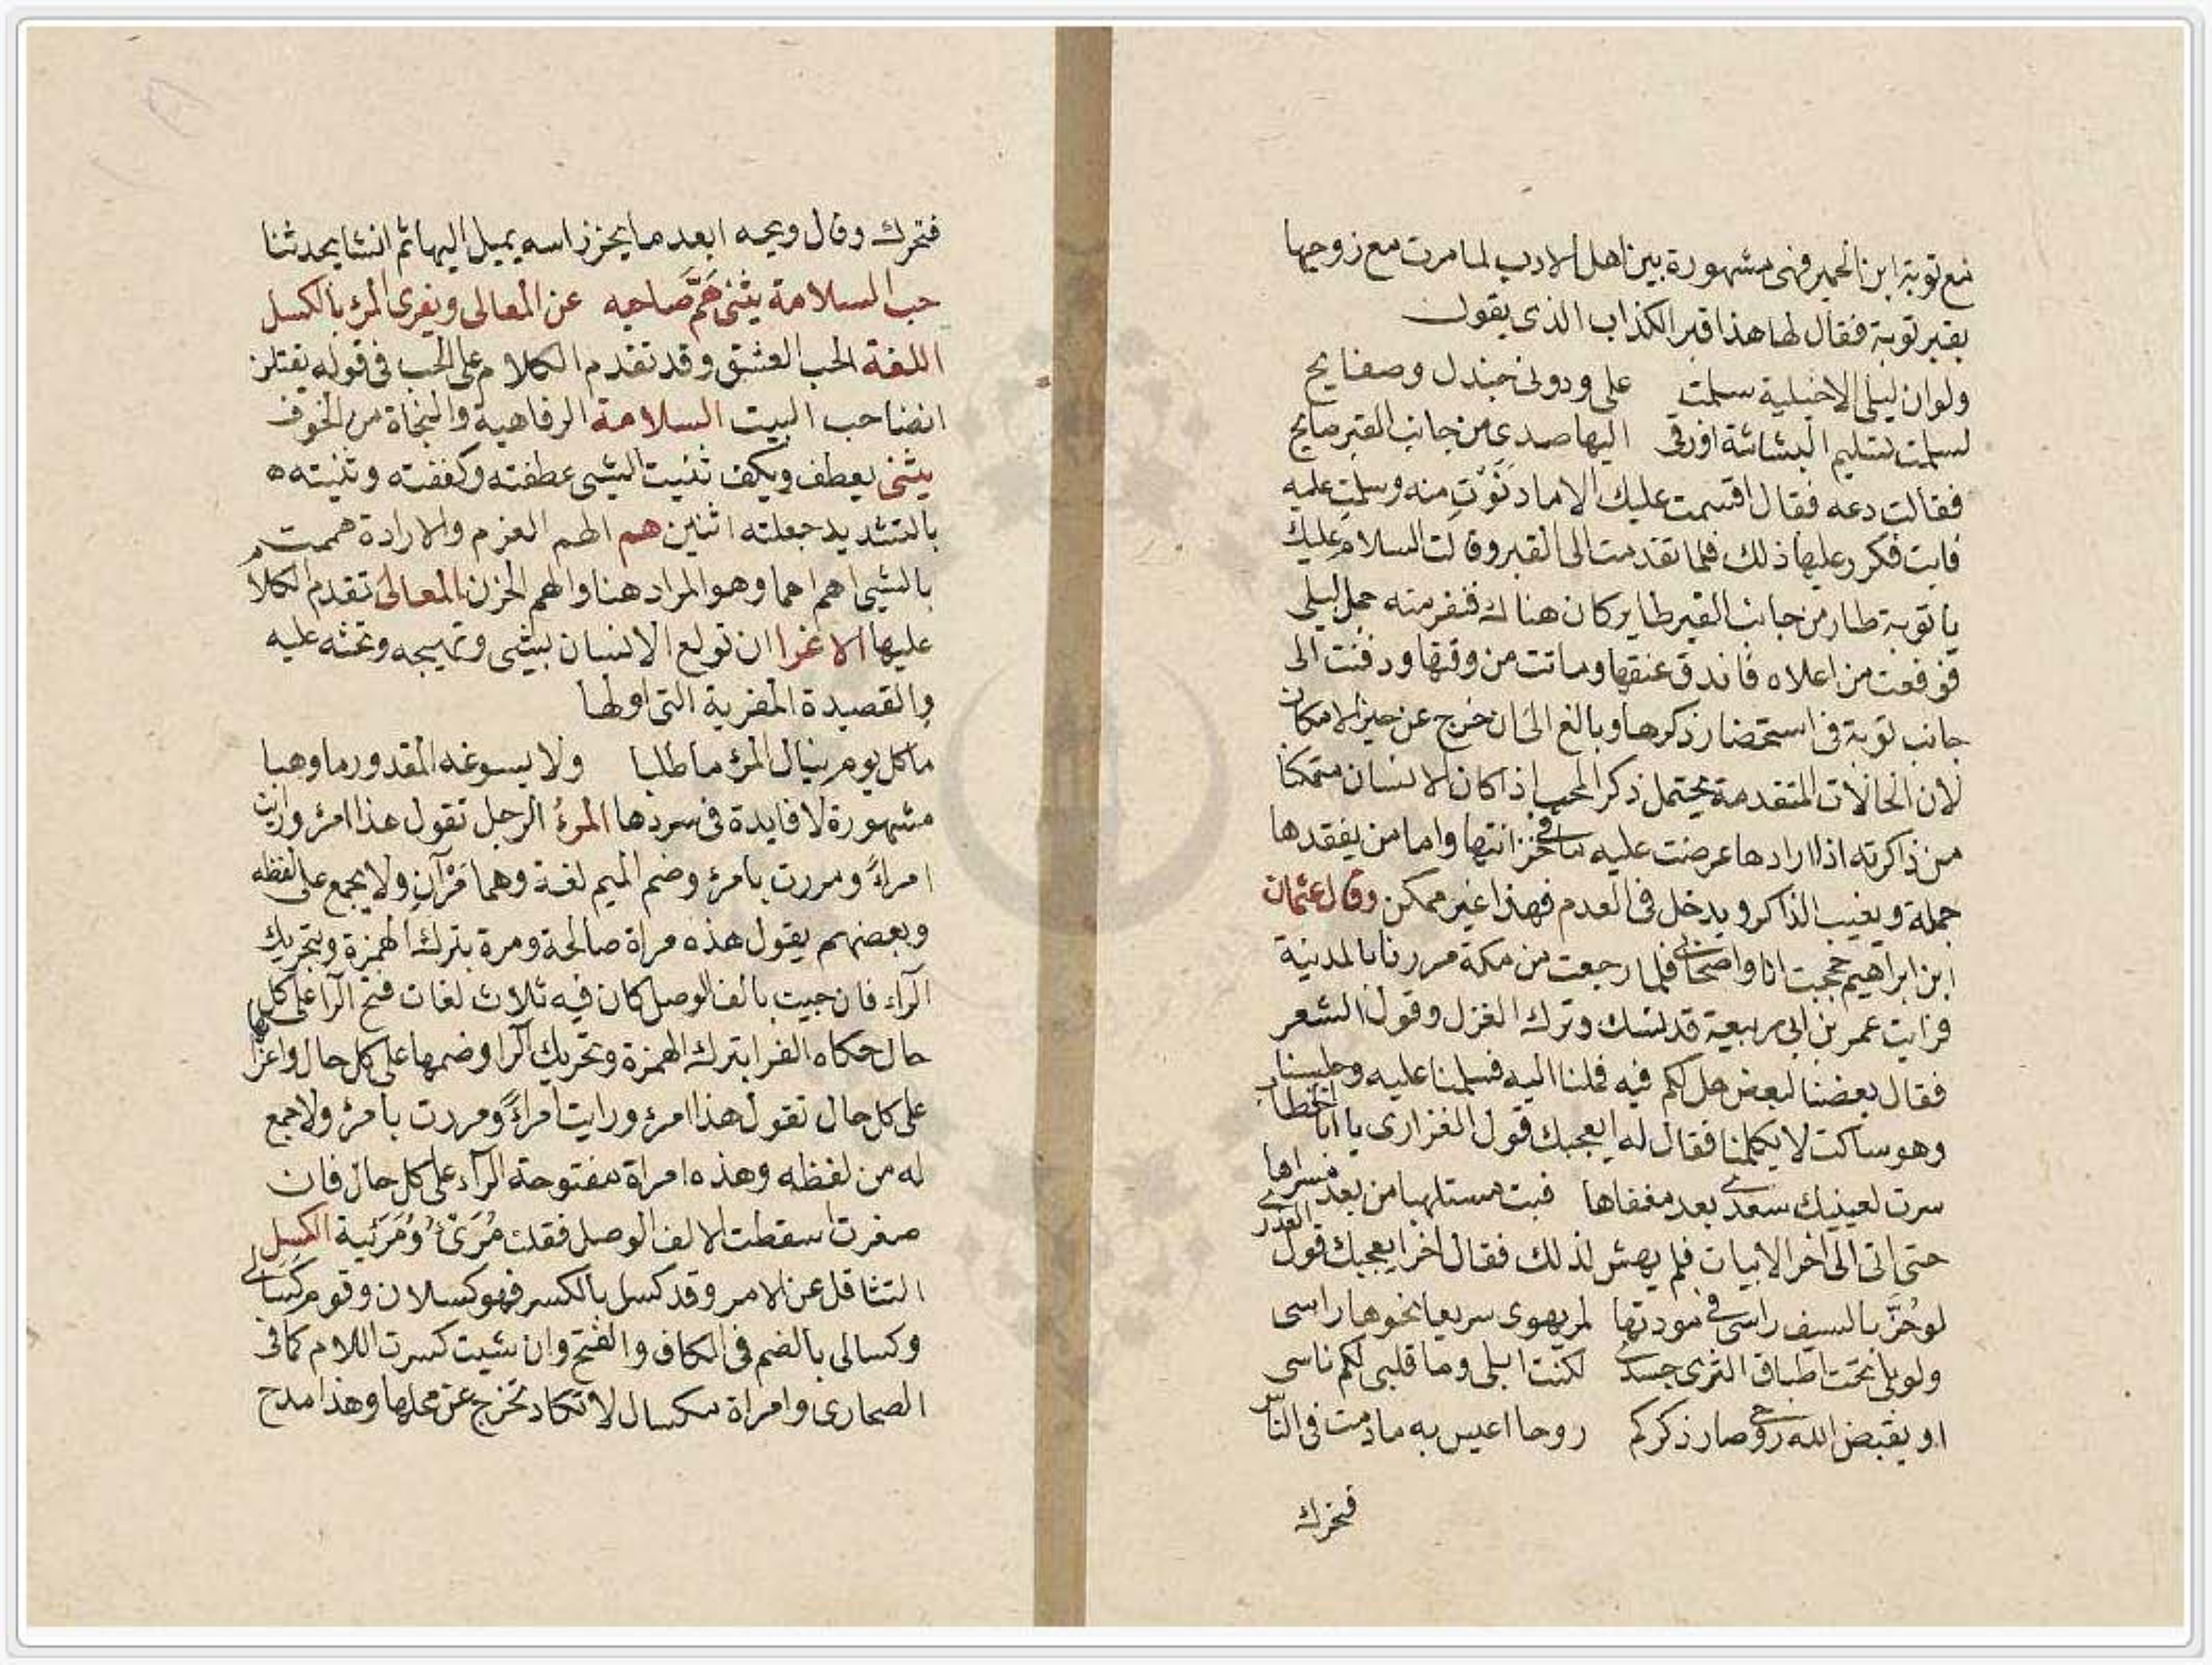 مع توبة ابن الحمير فهى مشهورة بين اهل الادب لما مرت مع زوجها
بقبر توبة فقال لها هذا قبر الكذاب الذى يقول
ولو ان ليلى الاخيلية سلمت على ودونى جندل وصفايح
لسلمت تسليم البشاشة اوزقى اليها صدى من جانب القبر صايح
فقالت دعه فقال اقسمت عليك الا ما دنوت منه وسلمت عليه
فابت فكرر عليها ذلك فلما تقدمت الى القبر وقالت السلام عليك
يا توبة طار من جانب القبر طاير كان هناك فنفر منه جمل ليلى
فوقعت من اعلاه فاندق عنقها وماتت من وقتها ودفنت الى
جانب توبة فى استحضار ذكرها وبالغ الى ان خرج عن حيز الامكان
لان الحالات المتقدمة يحتمل ذكر المحب اذا كان الانسان متمكنا
من ذاكرته اذا ارادها عرضت عليه ما فى خزانتها واما من يفقدها
جملة ويغيب الذاكر ويدخل فى العدم فهذا غير ممكن وقال عثمان
ابن ابراهيم حججت انا واصحابى فلما رجعت من مكة مررنا بالمدينة
فرايت عمر بن ابى ربيعة قد نسك وترك الغزل وقول الشعر
فقال بعضنا لبعض هل لكم فيه فملنا اليه فسلمنا عليه وجلسنا
وهو ساكت لا يكلمنا فقال له ايعجبك قول الفزارى يا ابا الخطاب
سرت لعينيك سعدى بعد مغفاها فبت مستلهيا من بعد مسراها
حتى اتى الى اخر الابيات فلم يهش لذلك فقال اخر ايعجبك قول العذرى
لو حُزَّ بالسيف راسى فى مودتها لمر يهوى سريعا نحوها راسى
ولو بلى تحت اطباق الثرى جسدى لكنت ابلى وما قلبى لكم ناسى
او يقبض الله روحى صار ذكركم روحا اعيس به ما دمت فى الناس
فتحرك
فتحرك وقال ويحه ابعد ما يحز راسه يميل اليها ثم انشا يحدثنا
حب السلامة يثنى هَمَّ صاحبه عن المعالى ويغرى المرء بالكسل
اللغة الحب العشق وقد تقدم الكلام على الحب فى قوله يقتلن
انضا حب البيت السلامة الرفاهية والنجاة من الخوف
يثنى يعطف ويكف ثنيت الشى عطفته وكففته وثنيته ه
بالتشديد جعلته اثنين هم الهم العزم والارادة هممت
بالشى اهم هما وهو المراد هنا والهم الحزن المعالى تقدم الكلام
عليها الاغرا ان تولع الانسان بشى وتهيجه وتحثه عليه
والقصيدة المغرية التى اولها
ما كل يوم ينال المرء ما طلبا ولا يسوغه المقدور ما وهبا
مشهورة لا فايدة فى سردها المرءُ الرجل تقول هذا امرء ورايت
امراءً ومررت بامرء وضم الميم لغة وهما مَرْآن ولا يجمع على لفظه
وبعضهم يقول هذه مراة صالحة ومرة بترك الهمزة وبتحريك
الراء فان جيت بالف الوصل كان فيه ثلاث لغات فتح الرا على كل
حال حكاه الفرا بترك الهمزة وتحريك الرا وضمها على كل حال واعرابها
على كل حال تقول هذا امرء ورايت امراءً ومررت بامرء ولا جمع
له من لفظه وهذه امراة مفتوحة الرآء على كل حال فان
صغرت اسقطت الالف الوصل فقلت مُرَىْءُ ومُرَئية الكسل
التثاقل عن الامر وقد كسل بالكسر فهو كسلان وقوم كسالى
وكسالى بالضم فى الكاف والفتح وان شيت كسرت اللام كما فى
الصحارى وامراة مكسال لا تكاد تخرج عن محلها وهذا مدح